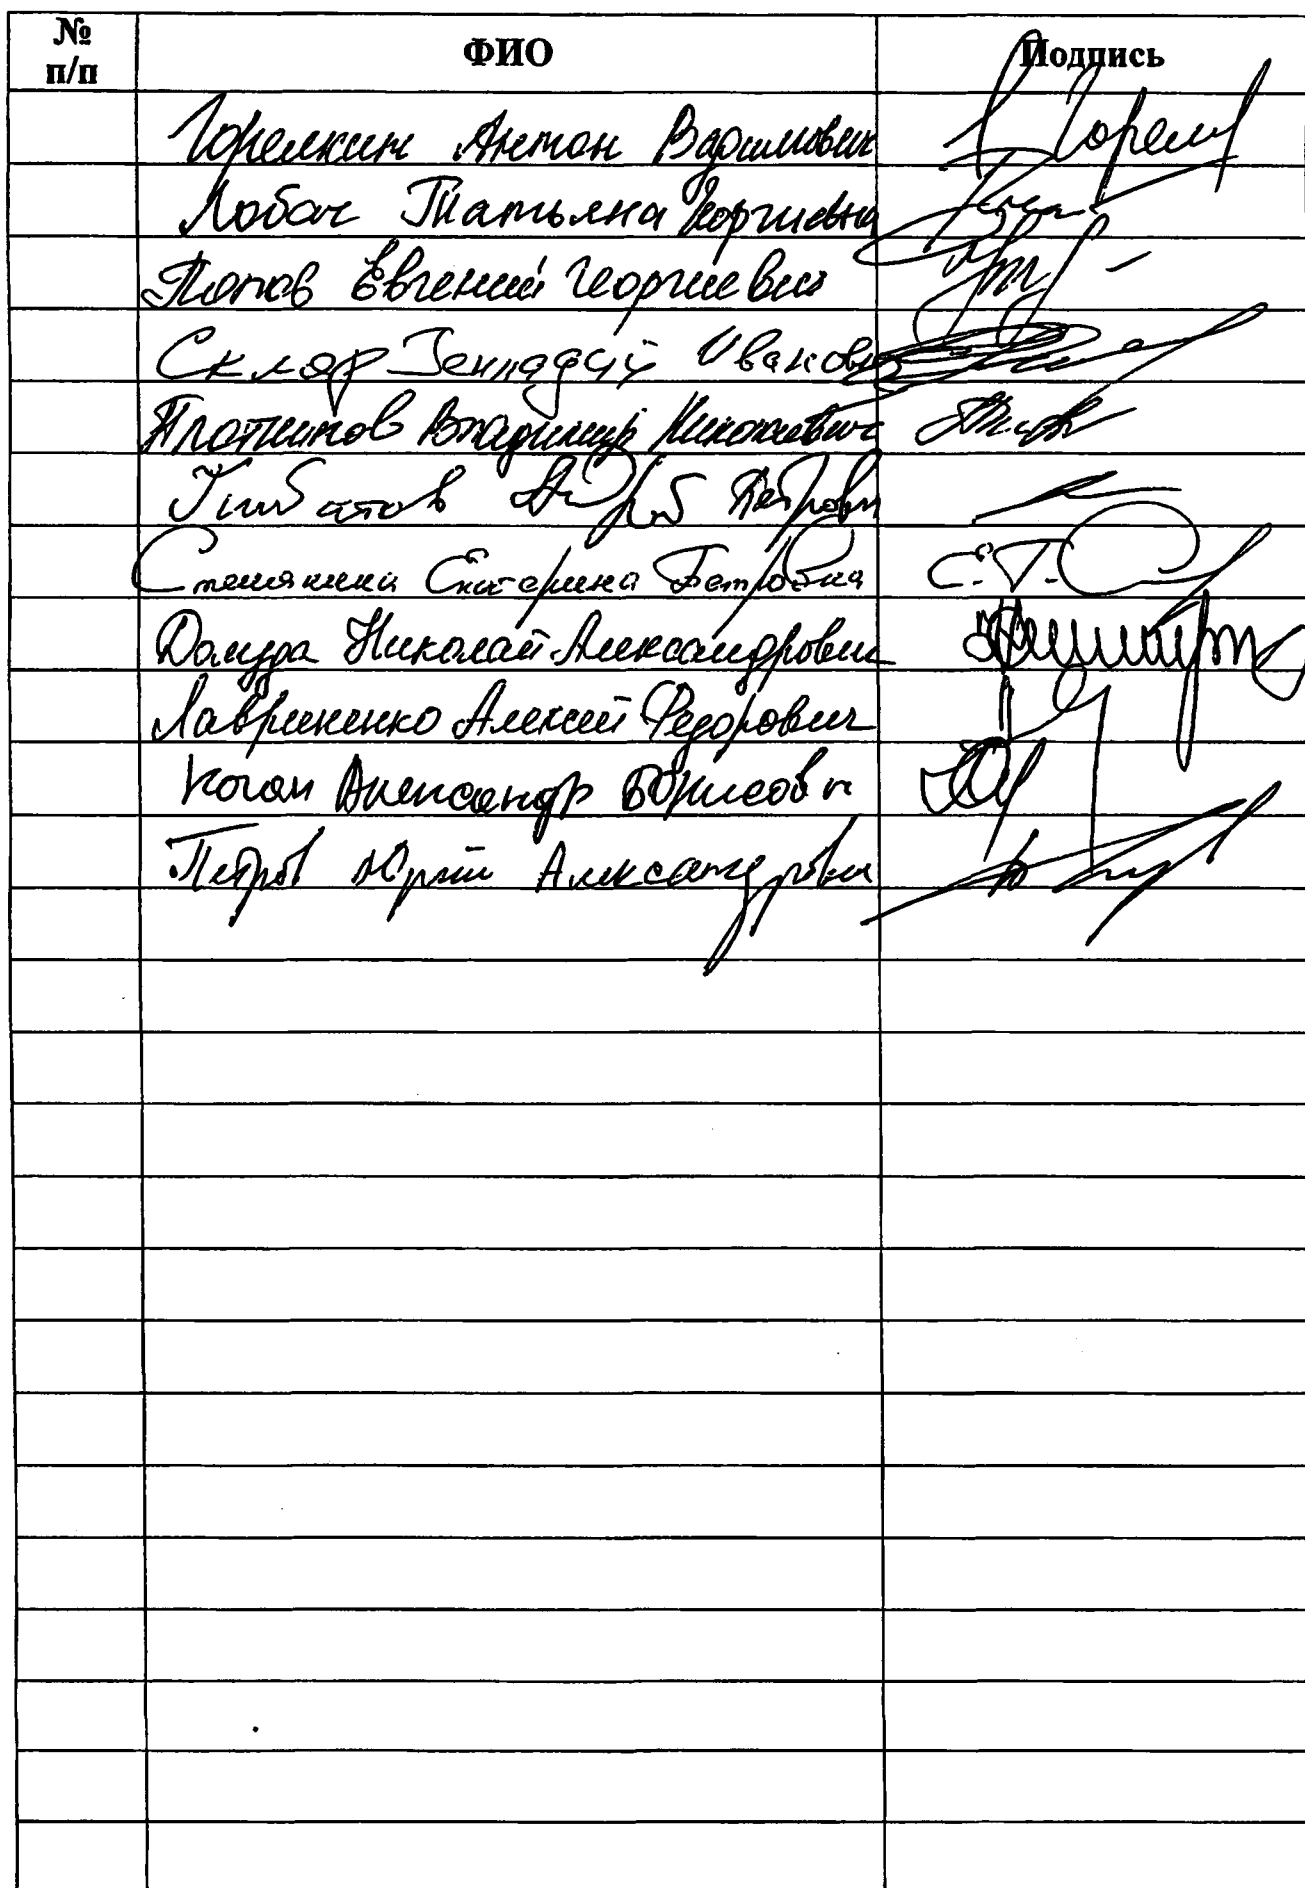 № п/п ФИО Подпись
Горелкин Антон Вадимович Горел
Лобач Татьяна Георгиевна
Попов Евгений Георгиевич
Скляр Геннадий Иванович
Плотников Владимир Николаевич
Петрович
Стенякина Екатерина Петровна С.П.
Долуда Николай Александрович
Лавриненко Алексей Федорович
Коган Александр Борисович
Петров Юрий Александрович